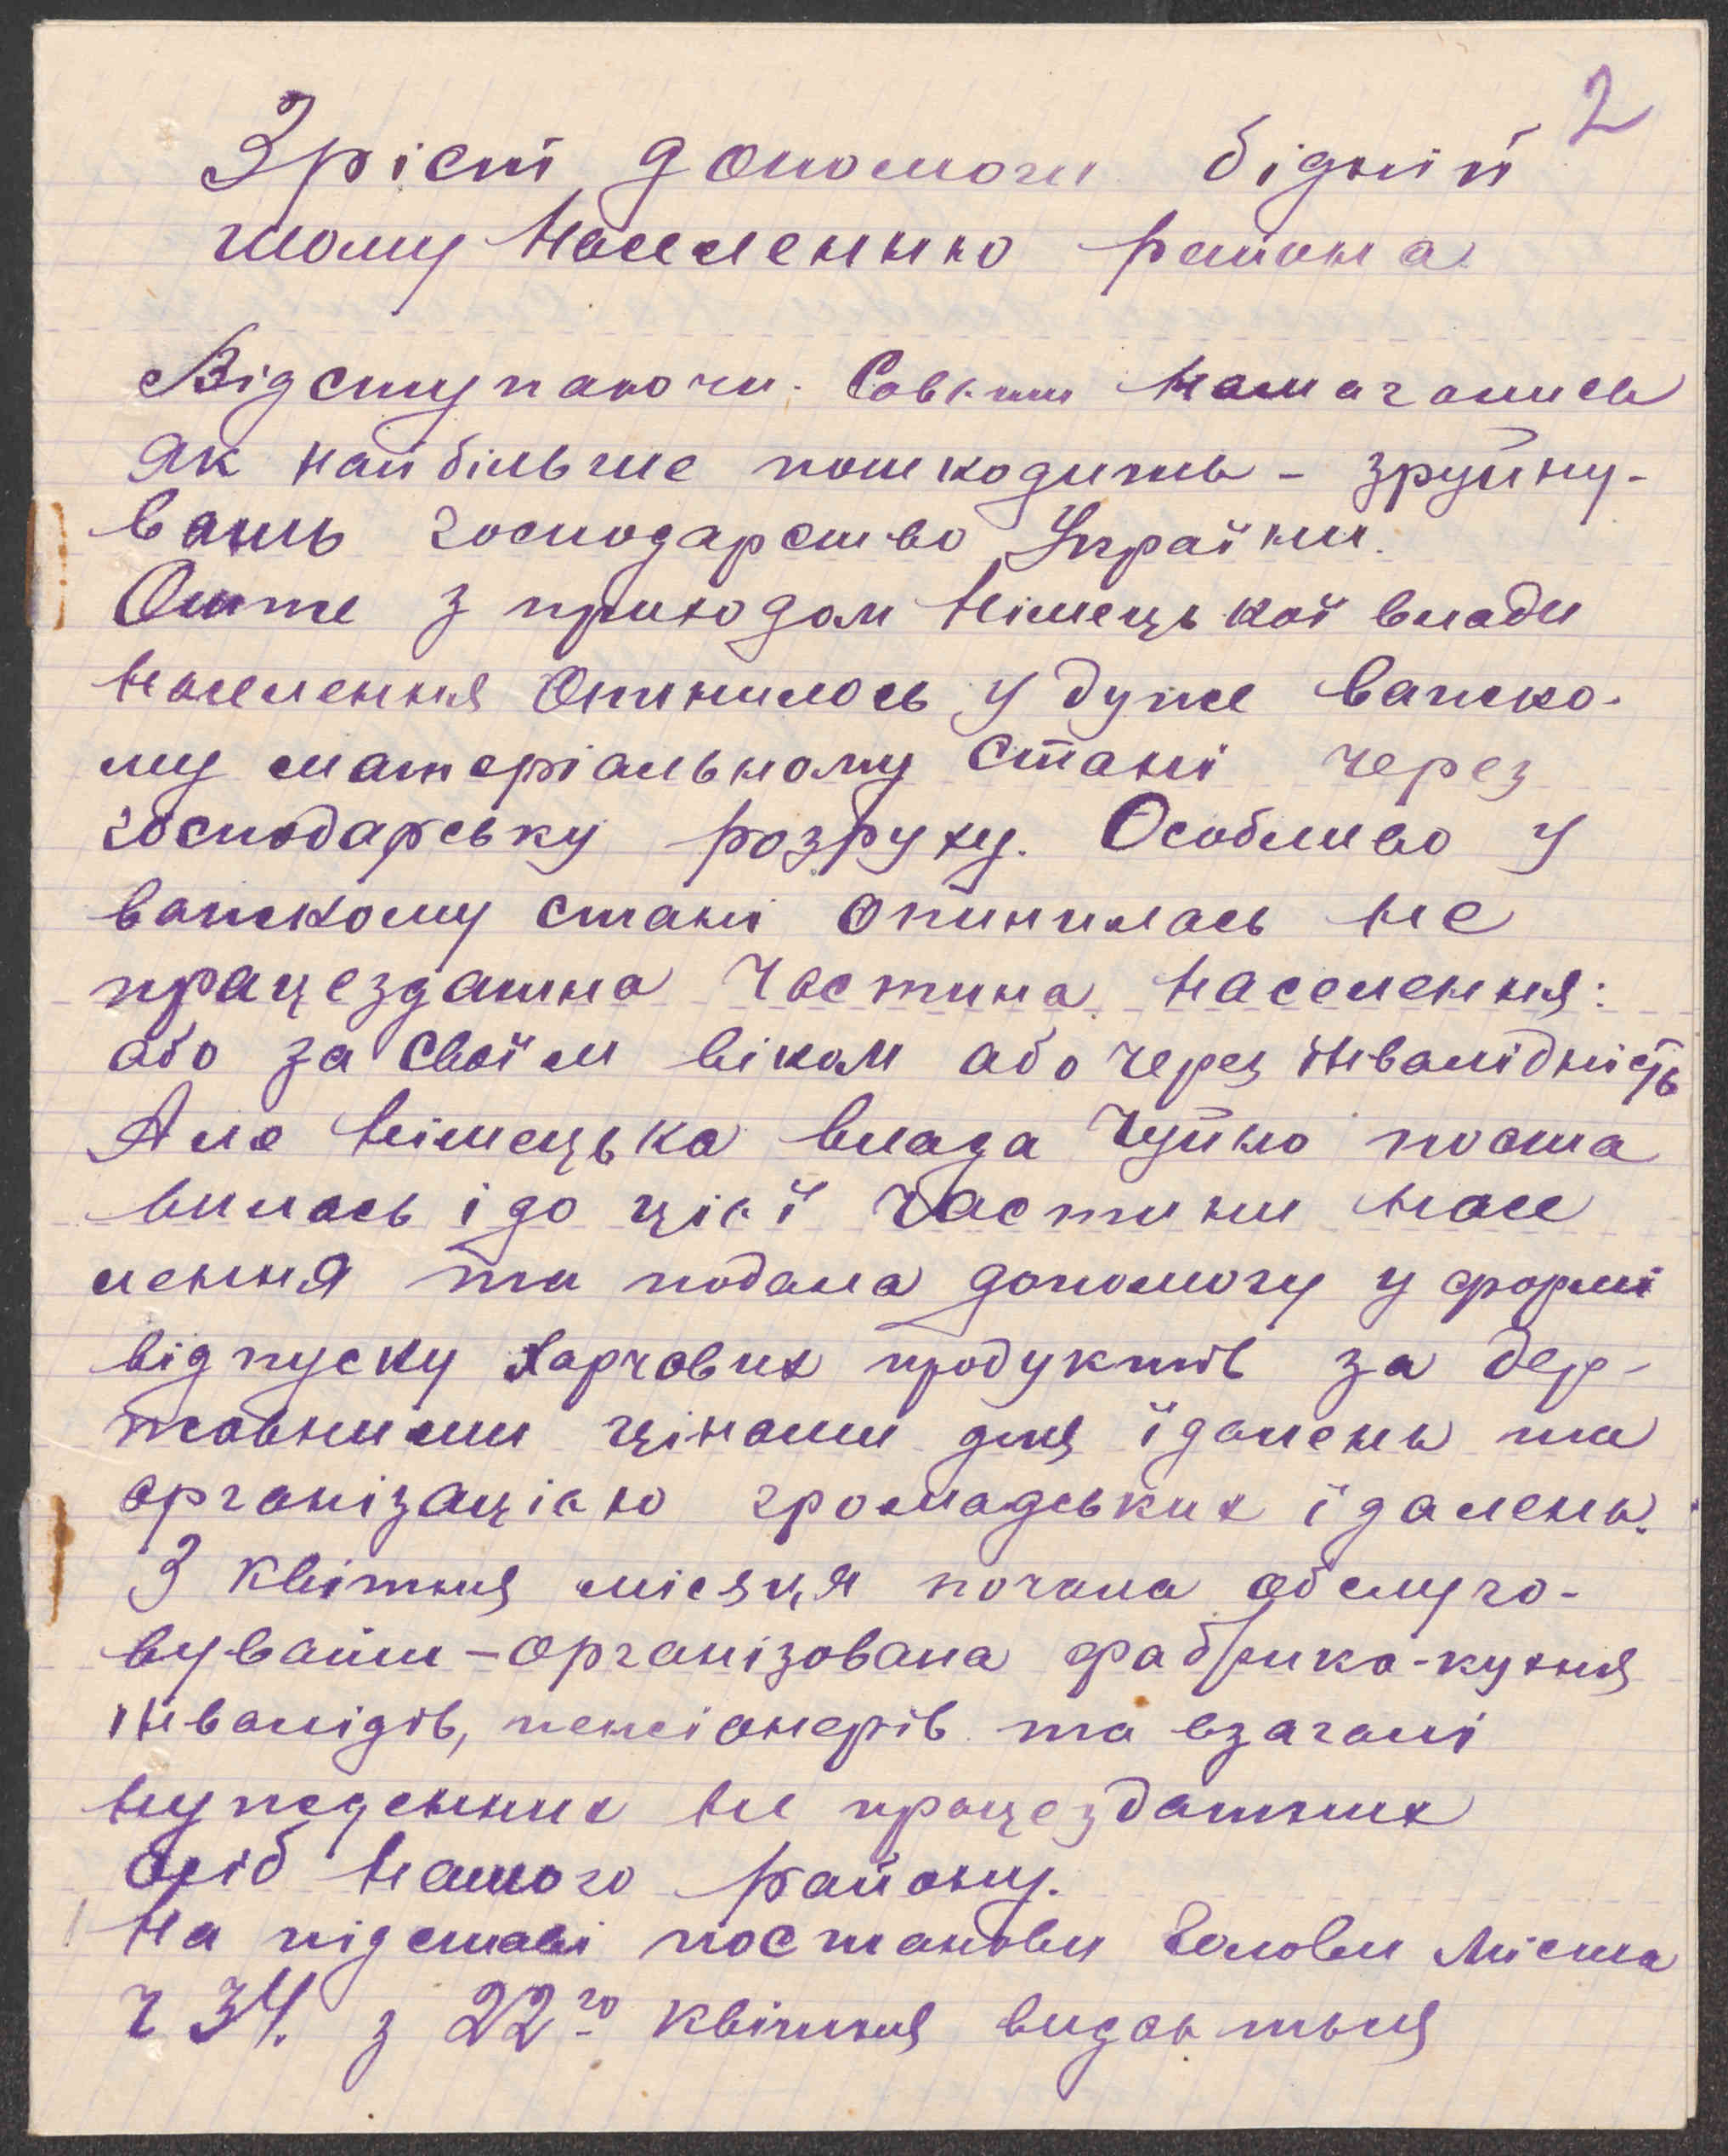 2
Зріст допомоги бідній
шому населенню района
Відступаючи. Совєти намагались
як найбільше пошкодить - зруйну-
вать господарство України.
Отже з приходом Німецької влади
населення опинилось у дуже важко-
му матеріальному стані через
господарську розруху. Особливо у
важкому стані опинилась не
працездатна частина населення:
або за своїм віком або через інвалідність
Але Німецька влада чуйно поста
вилась і до цієї частини насе
лення та подала допомогу у формі
відпуску харчових продуктів за дер-
жавними цінами для їдалень та
організацією громадських їдалень.
З квітня місяця почала обслуго-
вувати - організована фабрика-кухня
інвалідів, пенсіонерів та взагалі
нужденних не працездатних
осіб нашого району.
На підставі постанови Голови Міста
ч 34. з 22го квітня видається